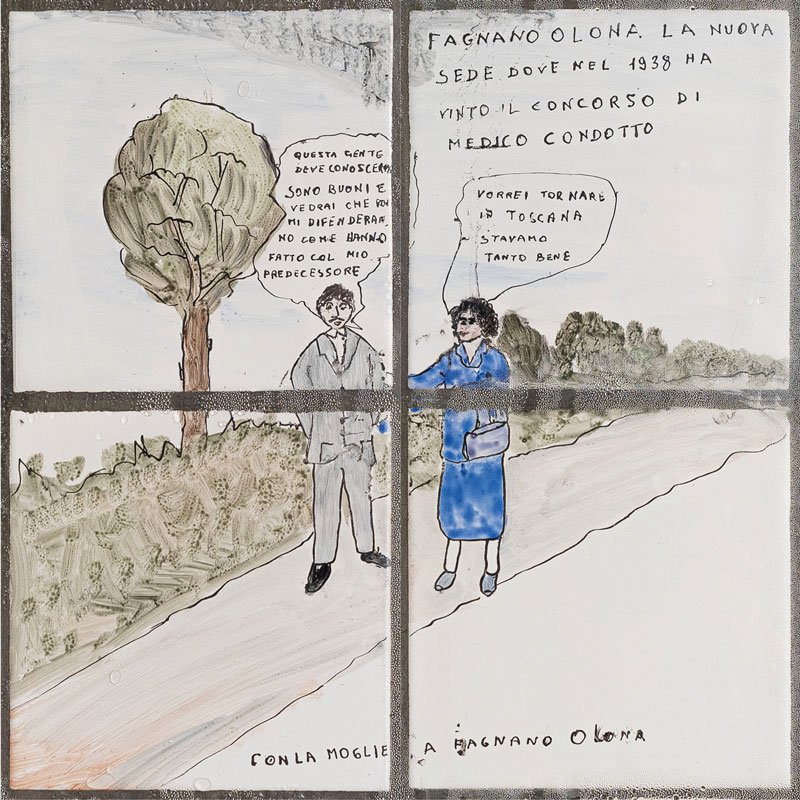 FAGNANO OLONA. LA NUOVA
SEDE DOVE NEL 1938 HA
VINTO IL CONCORSO DI
MEDICO CONDOTTO
QUESTA GENTE
DEVE CONOSCERMI
SONO BUONI E
VEDRAI CHE POI
MI DIFENDERAN.
NO COME HANNO
FATTO COL MIO
PREDECESSORE
VORREI TORNARE
IN TOSCANA
STAVAMO
TANTO BENE
CON LA MOGLIE A FAGNANO OLONA